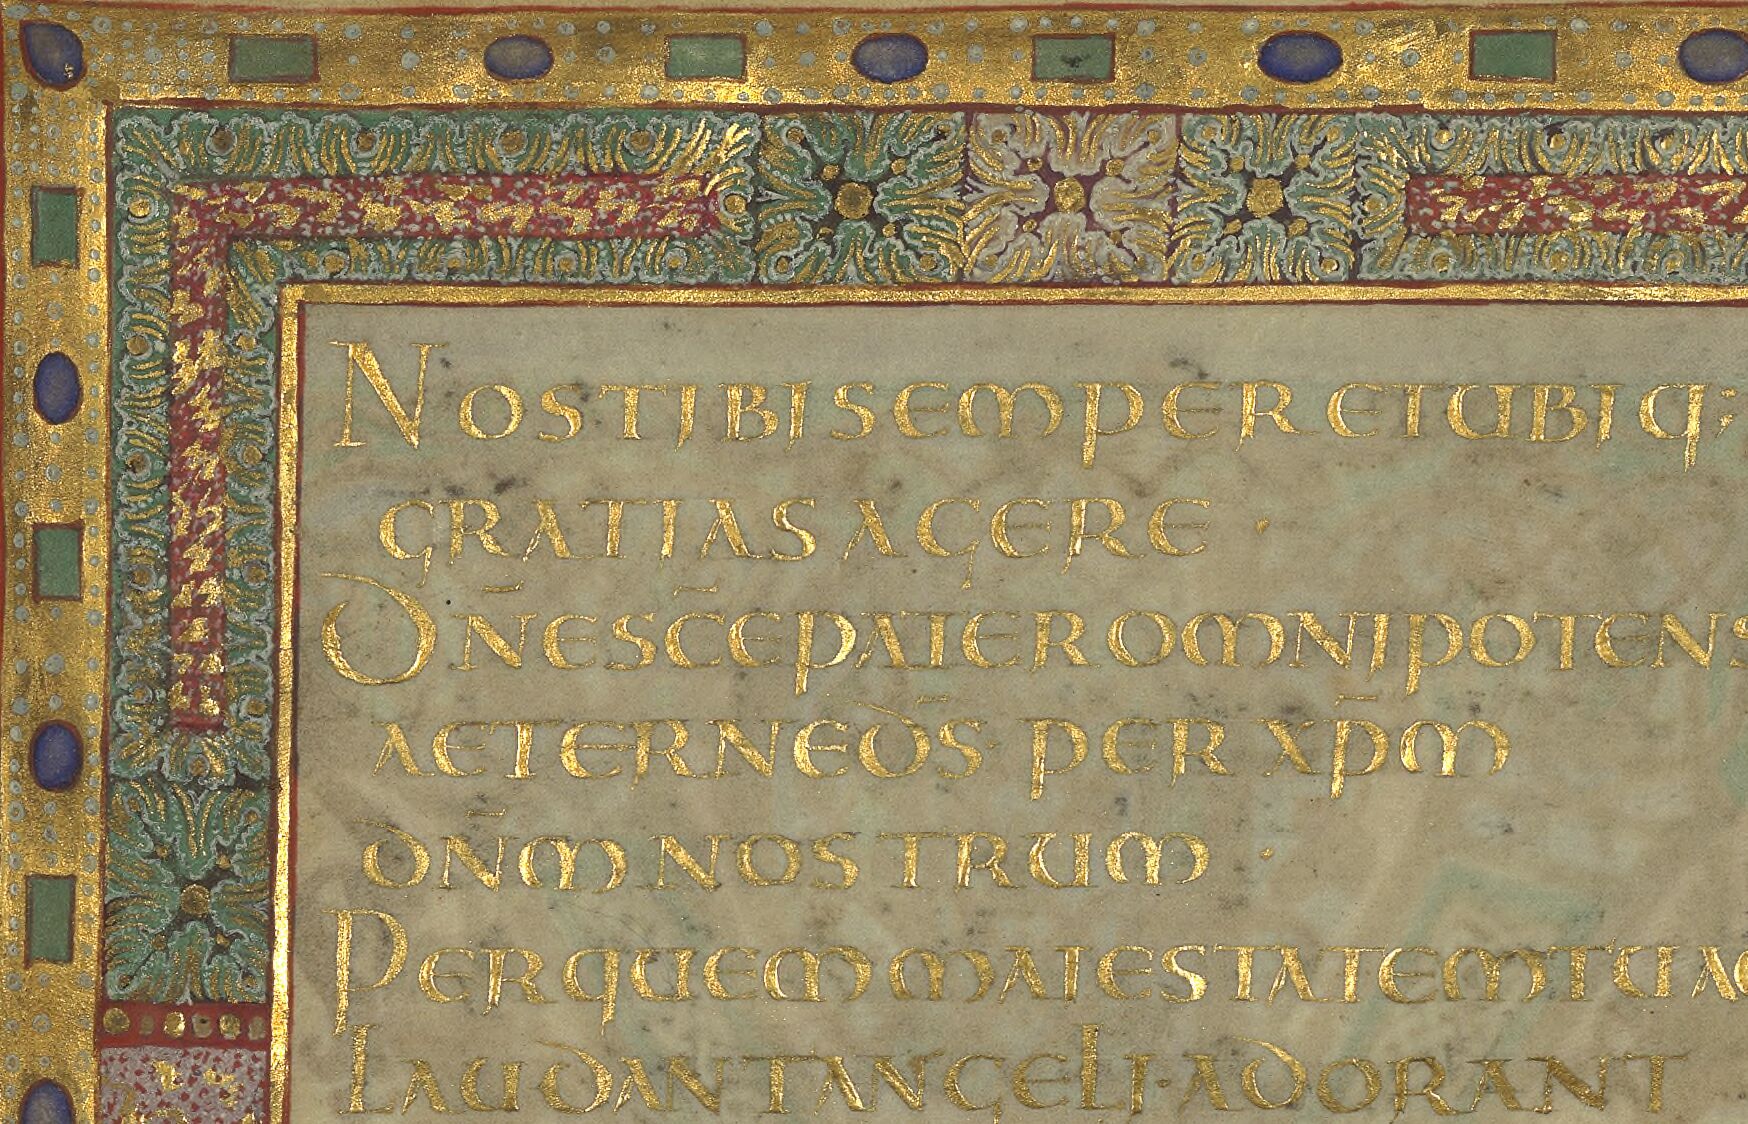 NOS TIBI SEMPER ET UBIQ;
GRATIAS AGERE ·
DN̄E SC̄E PATER OMNIPOTENS
AETERNE D̄S · PER XP̄M
DN̄M NOSTRUM ·
PER QUEM MAIESTATEM TUA
LAUDANT ANGELI · ADORANT